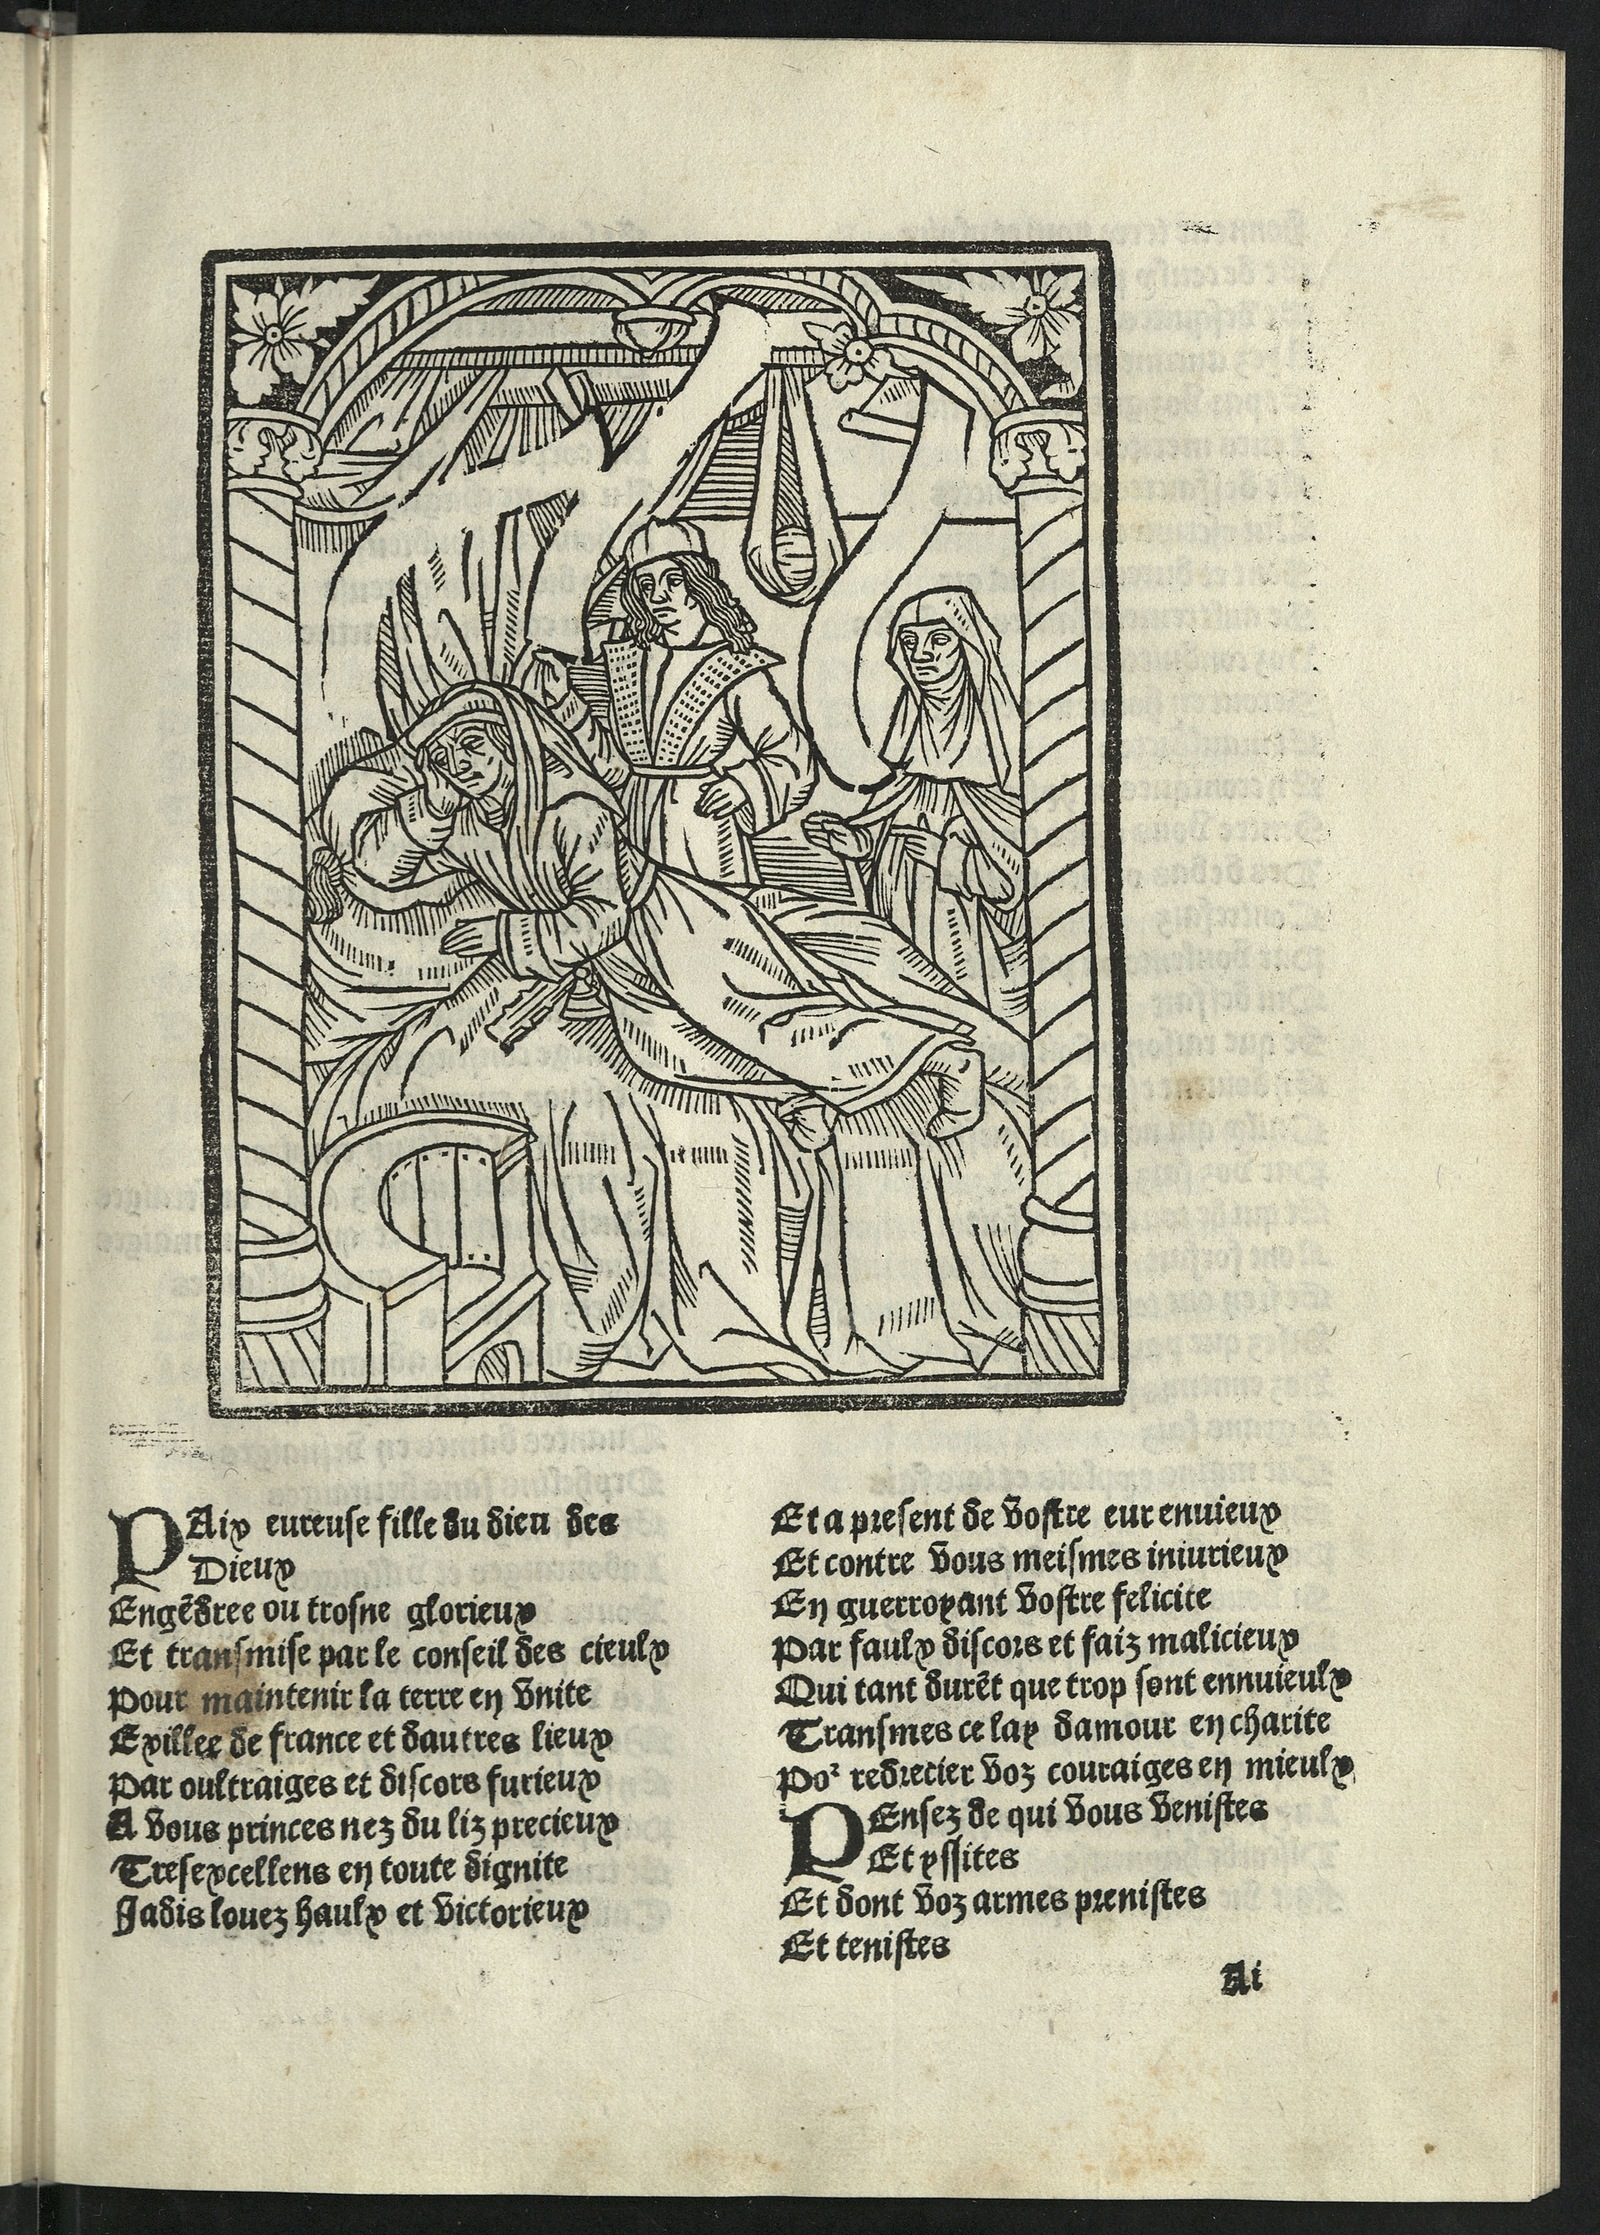 PAix eureuse fille du dieu des
Dieux
Engẽdree ou trosne glorieux
Et transmise par le conseil des cieulx
Pour maintenir la terre en vnite
Exillee de france et dautres lieux
Par oultraiges et discors furieux
A vous princes nez du liz precieux
Tresexcellens en toute dignite
Jadis louez haulx et victorieux
Et a present de vostre eur enuieux
Et contre vous meismes iniurieux
En guerroyant vostre felicite
Par faulx discors et faiz malicieux
Qui tant durẽt que trop sont ennuieulx
Transmes ce lay damour en charite
Poꝛ redrecier voz couraiges en mieulx
PEnsez de qui vous venistes
Et yssites
Et dont voz armes prenistes
Et tenistes
Ai